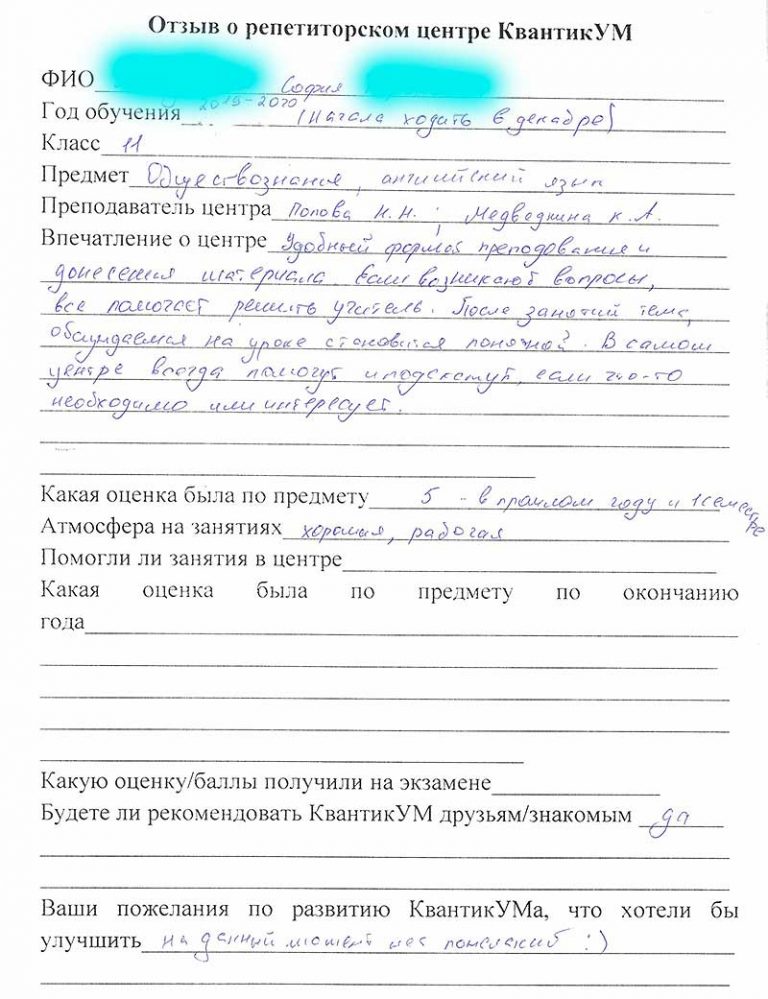 Отзыв о репетиторском центре КвантикУМ
ФИО София
Год обучения 2019-2020 (начала ходить в декабре)
Класс 11
Предмет Обществознания, английский язык
Преподаватель центра Попова Н.Н.; Медведкина К.А.
Впечатление о центре Удобный формат преподования и
донесения материала. Если возникают вопросы,
все помогает решить учитель. После занятий тема,
обсуждаемая на уроке становится понятной. В самом
центре всегда помогут и подскажут, если что-то
необходимо или интересует.
Какая оценка была по предмету 5 - в прошлом году и 1 семестре
Атмосфера на занятиях хорошая, рабочая
Помогли ли занятия в центре
Какая оценка была по предмету по окончанию
года
Какую оценку/баллы получили на экзамене
Будете ли рекомендовать КвантикУМ друзьям/знакомым да
Ваши пожелания по развитию КвантикУМа, что хотели бы
улучшить на данный момент нет пожеланий :)